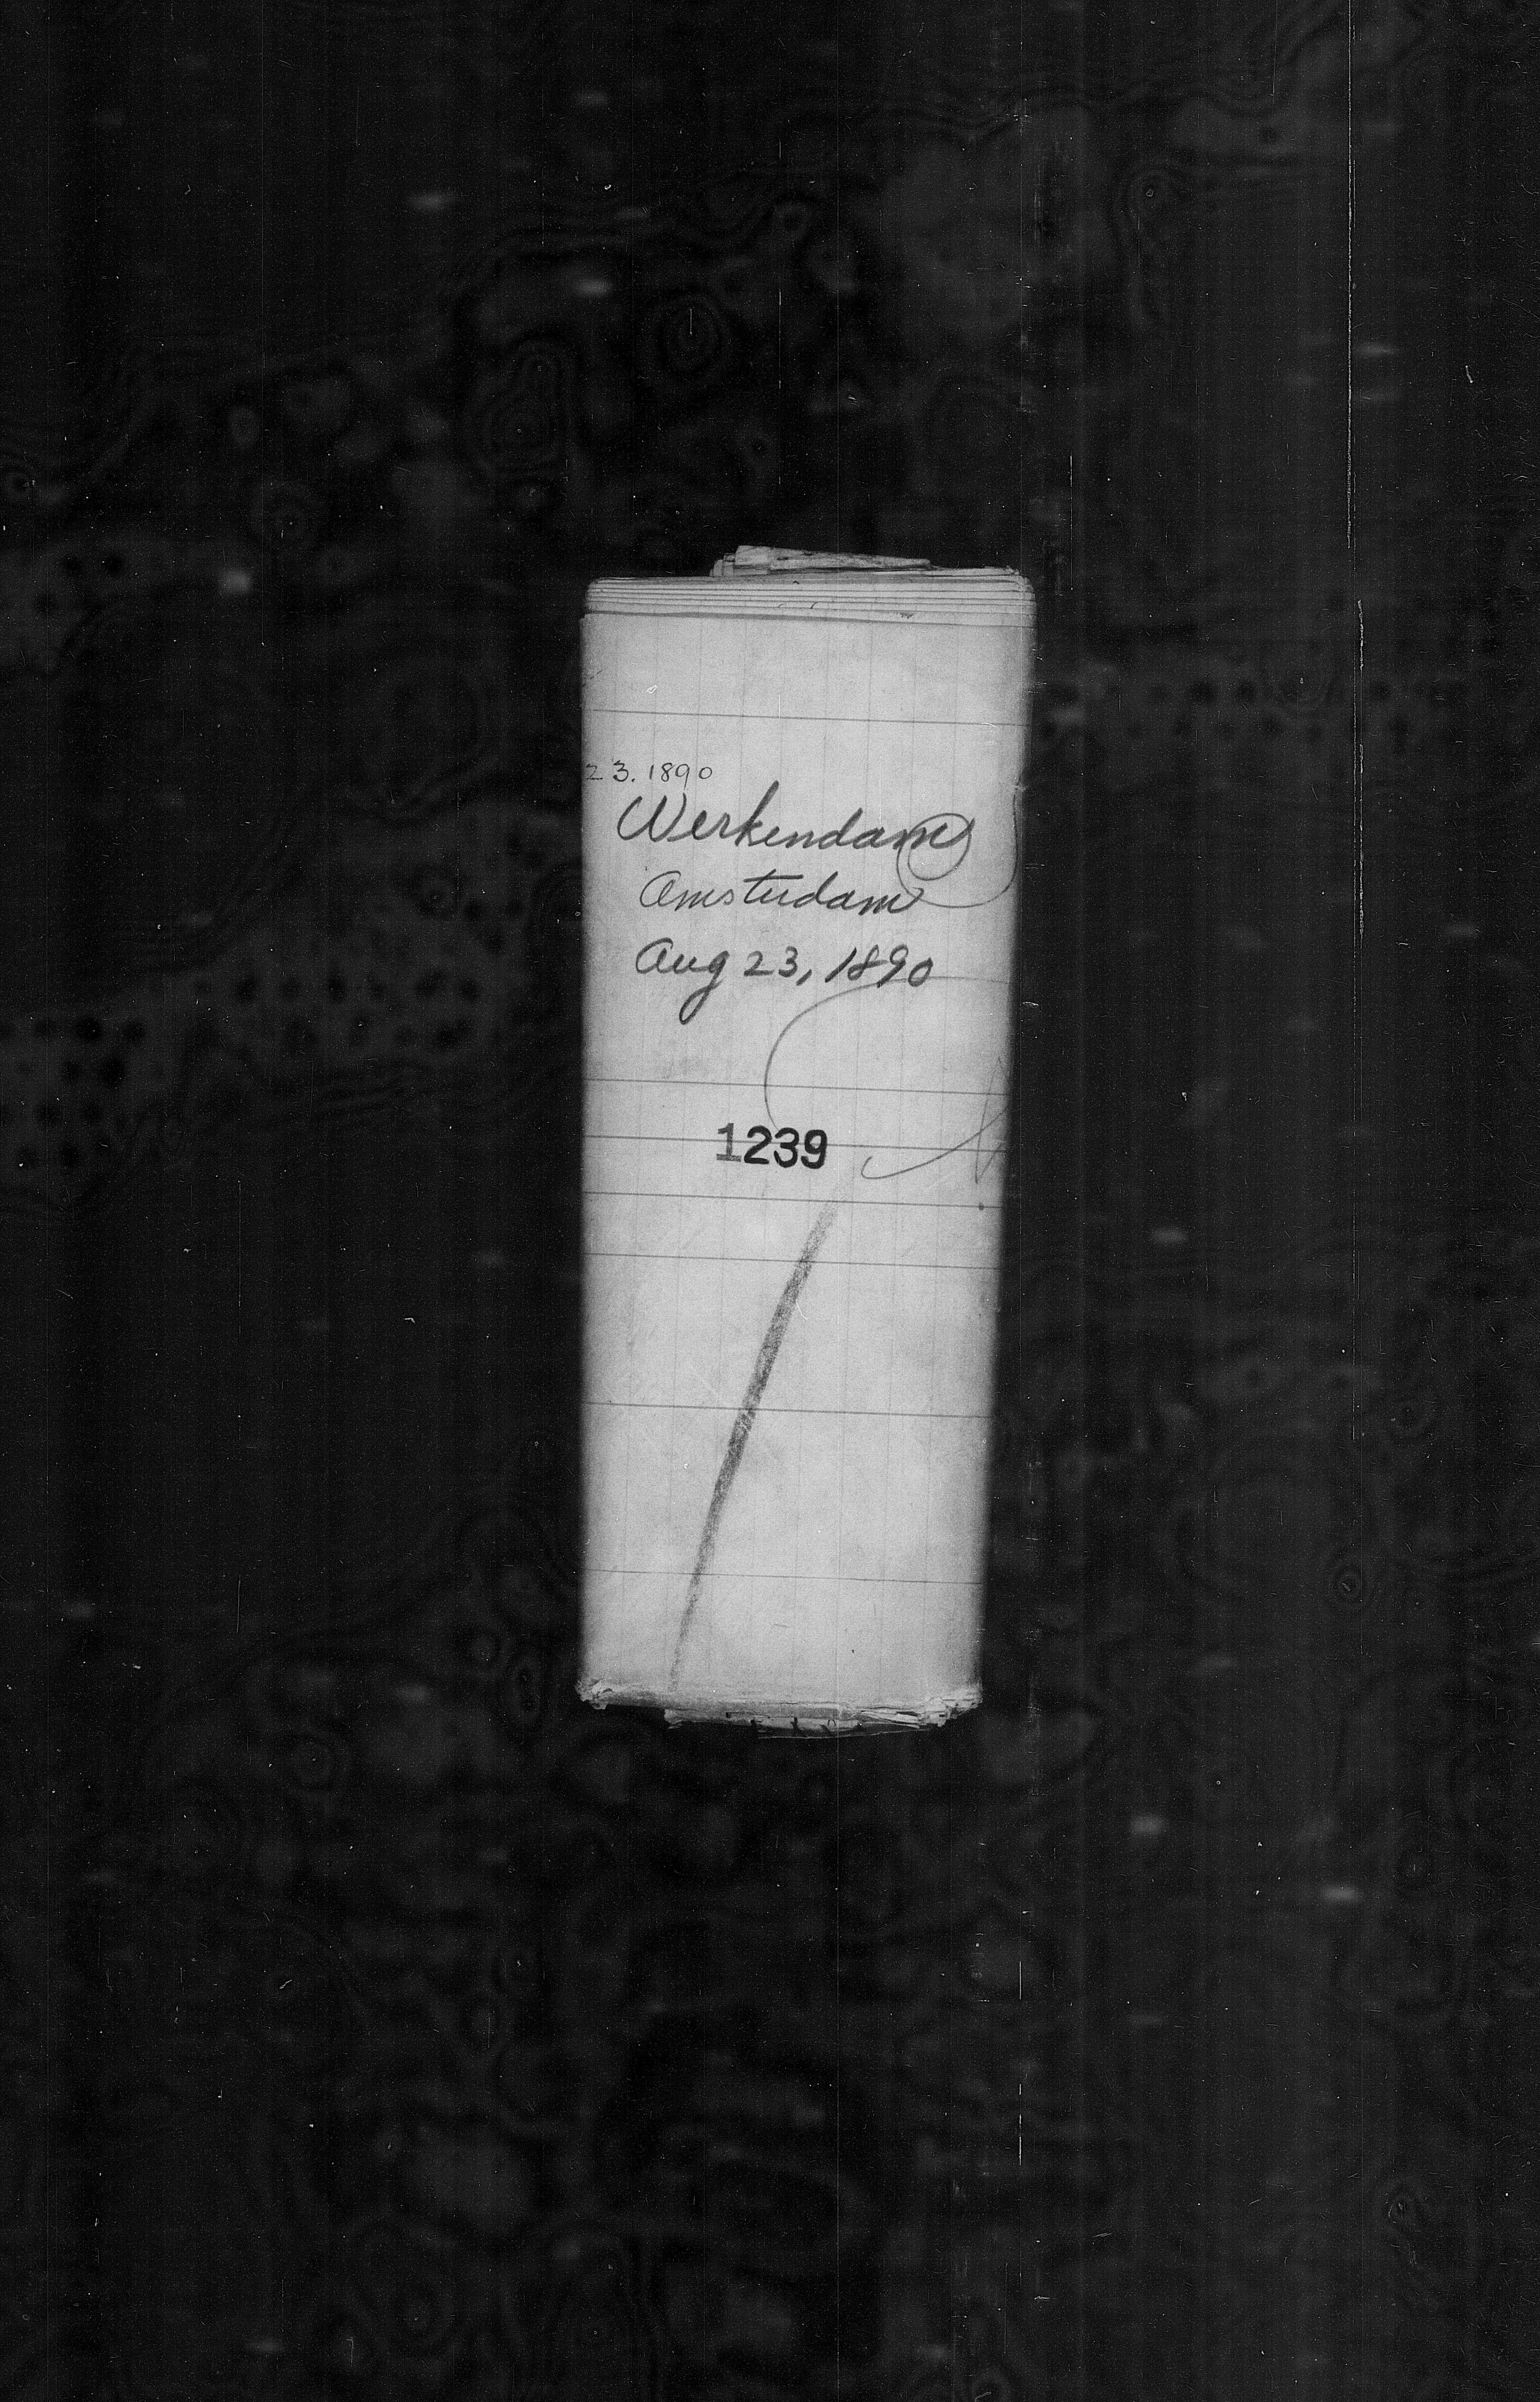 23.1890
Werkendam
Amsterdam
Aug 23, 1890
1239